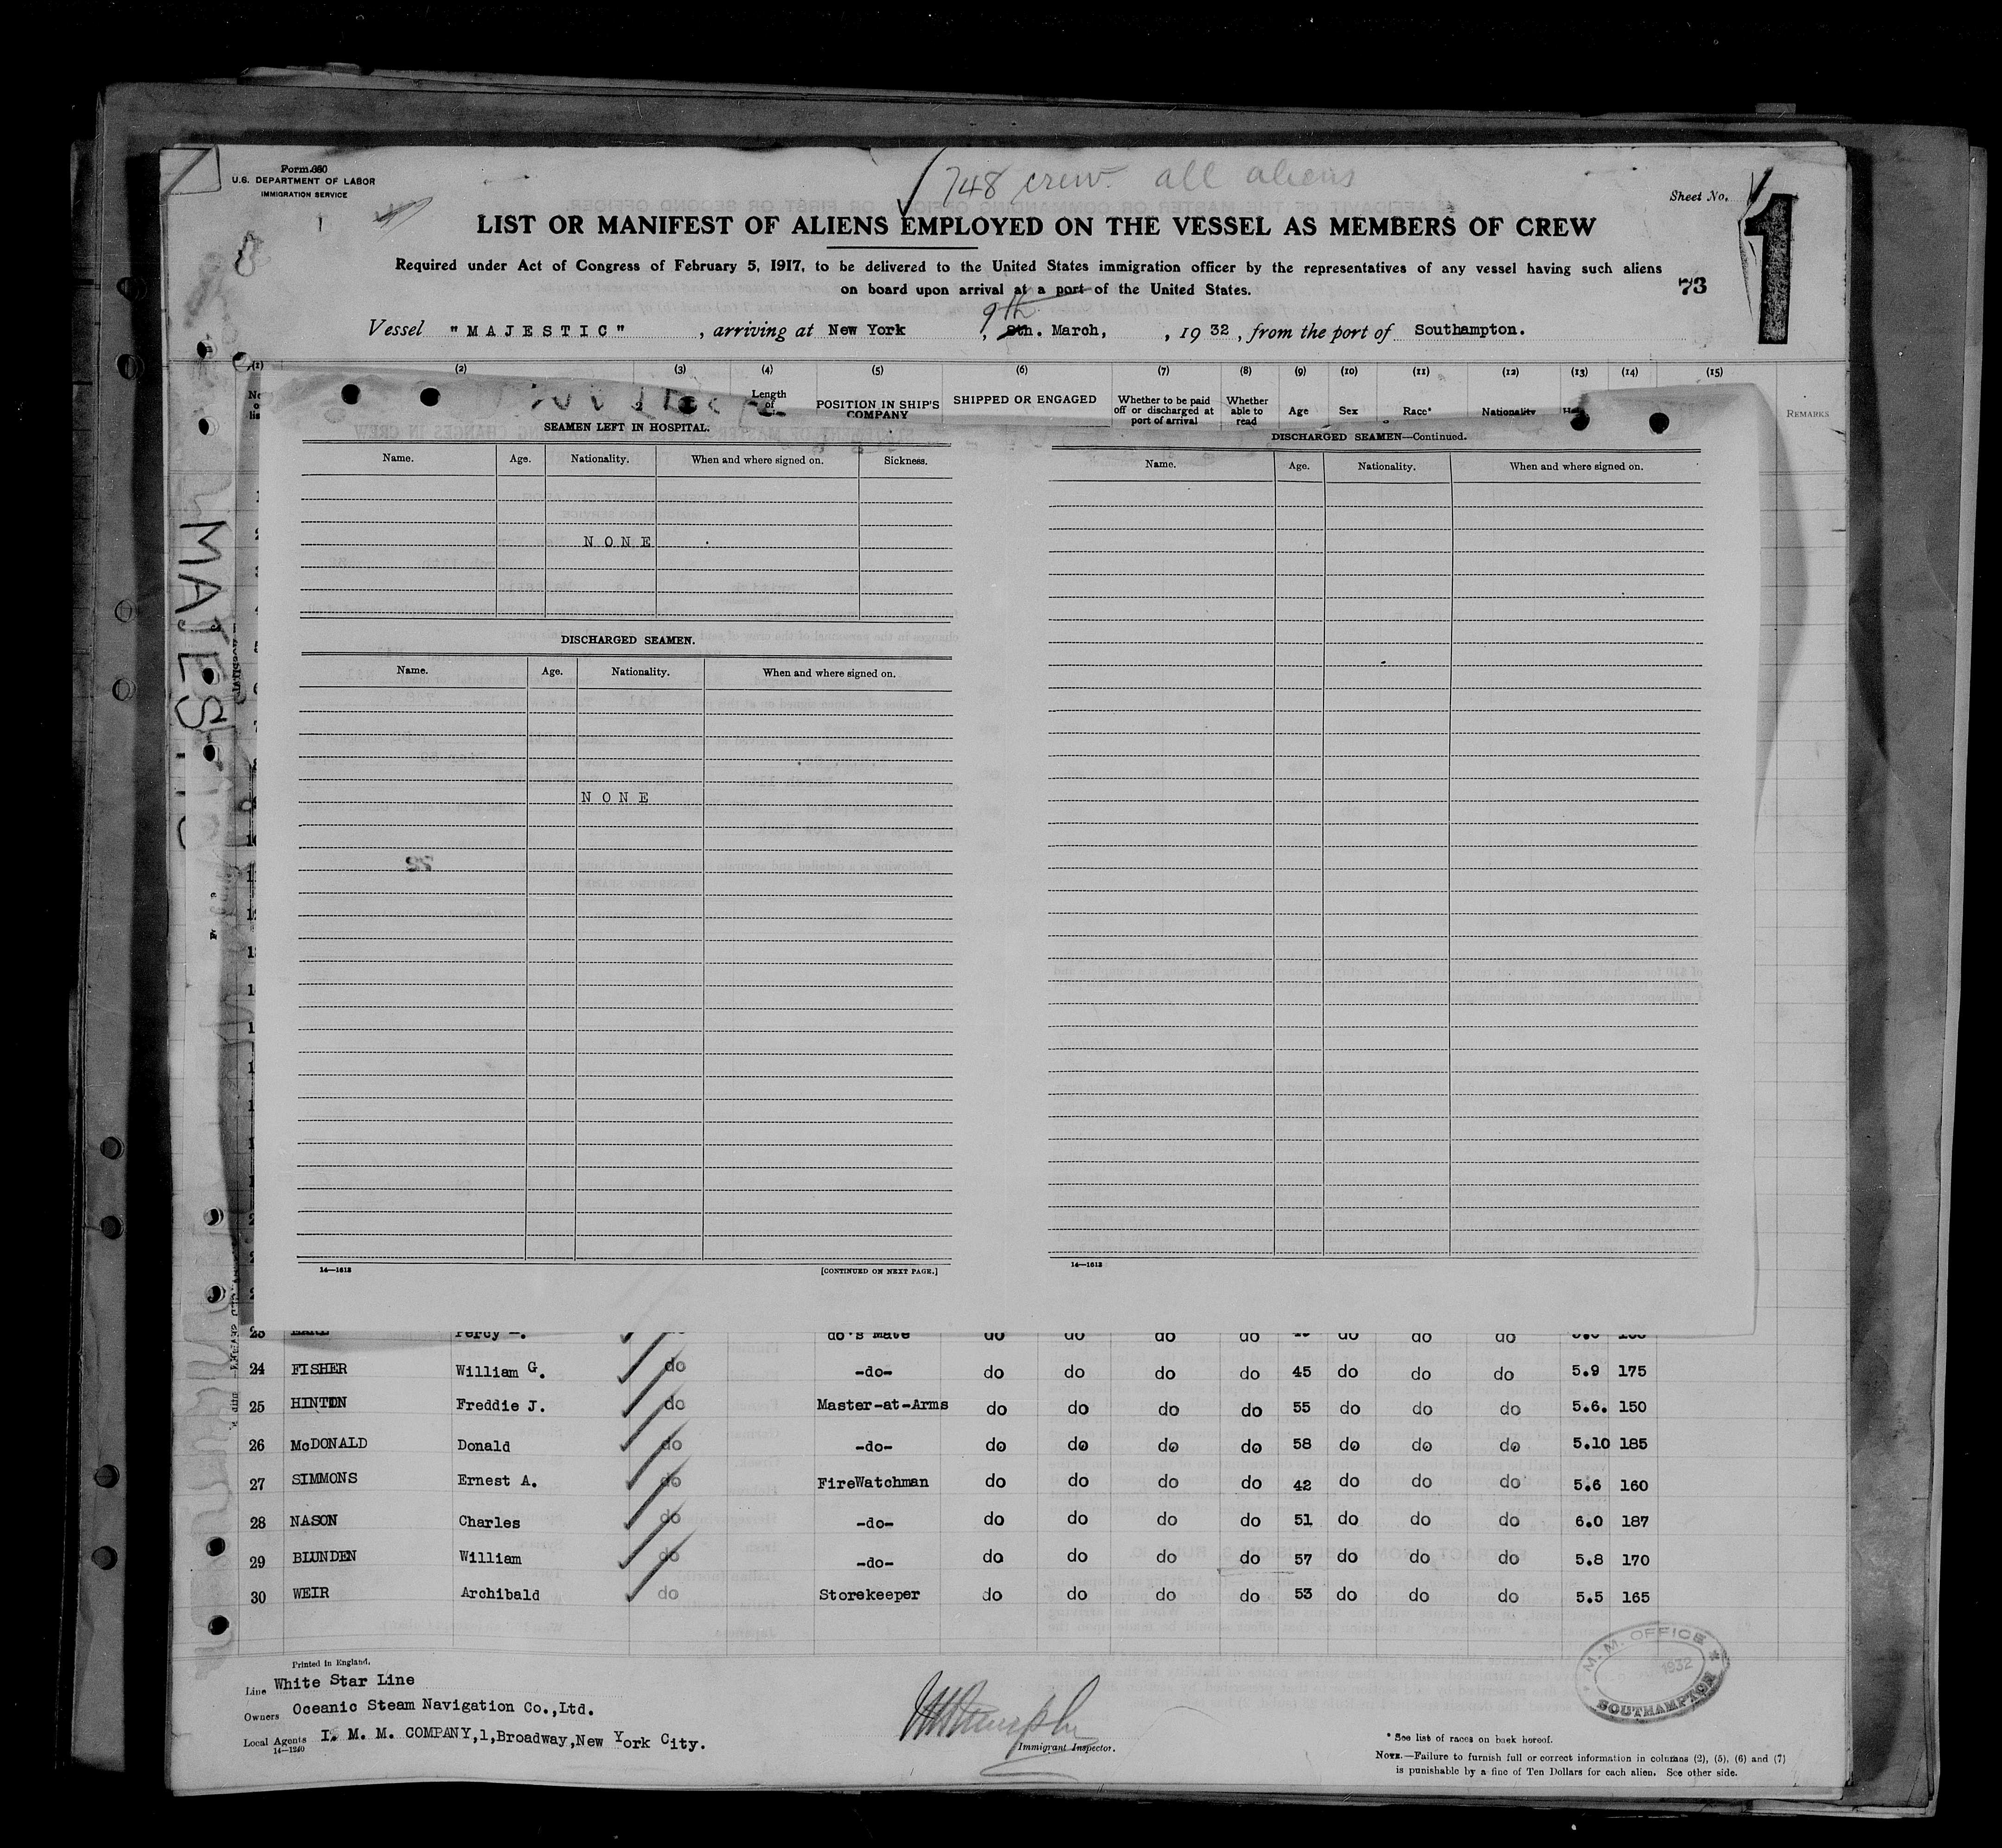 Form 680
U.S. DEPARTMENT OF LABOR
IMMIGRATION SERVICE
748 crew. all aliens
Sheet No. 1
LIST OR MANIFEST OF ALIENS EMPLOYED ON THE VESSEL AS MEMBERS OF CREW
Required under Act of Congress of February 5, 1917, to be delivered to the United States immigration officer by the representatives of any vessel having such aliens
on board upon arrival at a port of the United States.
73
9th
Vessel "MAJESTIC" , arriving at New York , 8th. March, , 19 32 , from the port of Southampton.
(1) (2) (3) (4) (5) (6) (7) (8) (9) (10) (11) (12) (13) (14) (15)
Length of POSITION IN SHIP'S COMPANY SHIPPED OR ENGAGED Whether to be paid off or discharged at port of arrival Whether able to read Age Sex Race* Nationality REMARKS
MAJESTIC
SEAMEN LEFT IN HOSPITAL.
Name. Age. Nationality. When and where signed on. Sickness.
NONE
DISCHARGED SEAMEN.
Name. Age. Nationality. When and where signed on.
NONE
14—1613 [CONTINUED ON NEXT PAGE.]
DISCHARGED SEAMEN—Continued.
Name. Age. Nationality. When and where signed on.
14—1613
23 Percy do's Mate do do do do do do do
24 FISHER William G. do -do- do do do do 45 do do do 5.9 175
25 HINTON Freddie J. do Master-at-Arms do do do do 55 do do do 5.6. 150
26 McDONALD Donald do -do- do do do do 58 do do do 5.10 185
27 SIMMONS Ernest A. do FireWatchman do do do do 42 do do do 5.6 160
28 NASON Charles do -do- do do do do 51 do do do 6.0 187
29 BLUNDEN William do -do- do do do do 57 do do do 5.8 170
30 WEIR Archibald do Storekeeper do do do do 53 do do do 5.5 165
Printed in England.
Line White Star Line
Owners Oceanic Steam Navigation Co.,Ltd.
Local Agents I. M. M. COMPANY,1,Broadway,New York City.
14—1240
Immigrant Inspector.
M.M. OFFICE
1932
SOUTHAMPTON
* See list of races on back hereof.
NOTE.—Failure to furnish full or correct information in columns (2), (5), (6) and (7)
is punishable by a fine of Ten Dollars for each alien. See other side.